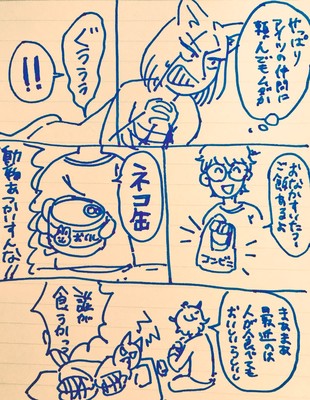 やっぱり
アイツの仲間に
頼んでもムダか
ぐうううう
!!
おなかすいたっ?
ご飯あるよ
コンビニ
ネコ缶
動物あつかいすんな!!
まぁまぁ
最近のは
人が食べても
おいしいらしい
誰が
食うかっ